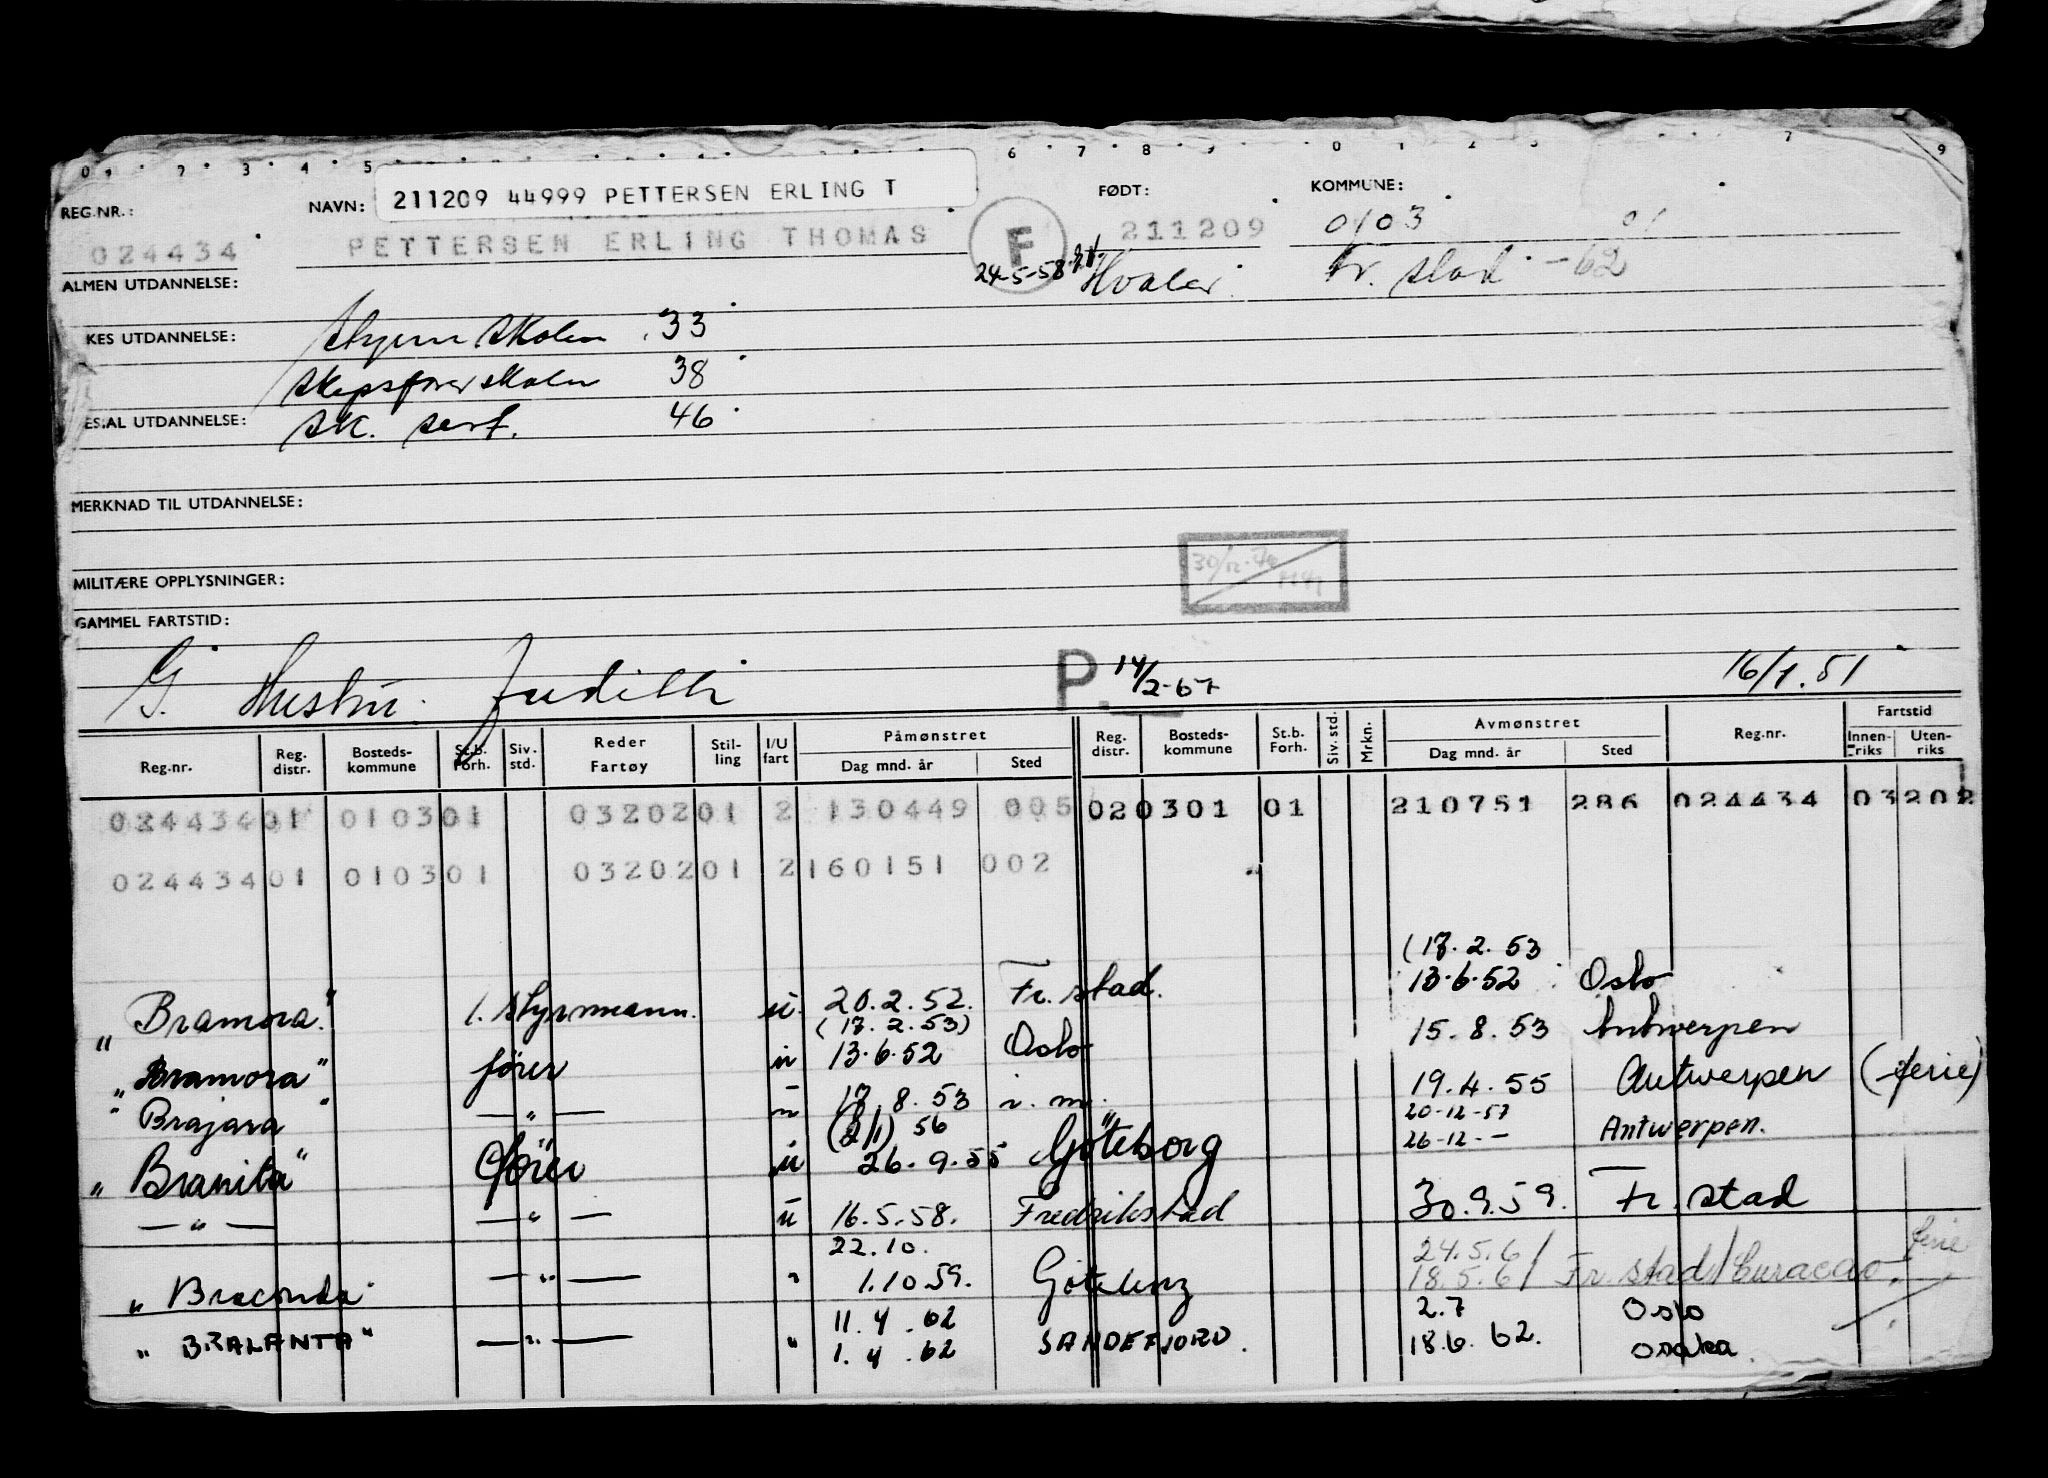 REG.NR.: NAVN: 211209 44999 PETTERSEN ERLING T FØDT: KOMMUNE:
024434 PETTERSEN ERLING THOMAS F 211209 0103 01
24-5-58 Hvaler Fr. stad -62
ALMEN UTDANNELSE:
KES UTDANNELSE: Styrm skolen 33
skipsfører skolen 38
ESIAL UTDANNELSE: sk. sert. 46
MERKNAD TIL UTDANNELSE:
30/12-70
MILITÆRE OPPLYSNINGER:
GAMMEL FARTSTID:
G. Hustru: Judith P. 14/2-67 16/1.51
Reg.nr. Reg. distr. Bosteds-kommune St.b. Forh. Siv. std. Reder Fartøy Stil-ling I/U fart Påmønstret Dag mnd. år Sted Reg. distr. Bosteds-kommune St.b. Forh. Siv. std. Mrkn. Avmønstret Dag mnd. år Sted Reg.nr. Fartstid Innen-riks Uten-riks
024434 01 0103 01 0320201 2 130449 005 02 0301 01 210751 286 024434 03 202
024434 01 0103 01 0320201 2 160151 002
(17.2.53
"Bramora." 1. styrmann. u. 20.2.52. Fr. stad. 13.6.52 Oslo
(17.2.53)
"Bramora" fører u 13.6.52 Oslo 15.8.53 Antwerpen
"Brajara" — " — u 17.8.53 i. m. 19.4.55 Antwerpen (ferie)
(2/1) 56 20-12-57
"Branita" fører u 26.9.55 Göteborg 26-12-- Antwerpen.
— " — — " — u 16.5.58. Fredrikstad 30.9.59. Fr. stad
22.10. 24.5.61 ferie
"Braconda" — " — " 1.10.59. Göteborg 18.5.61 Fr. stad/Curacao
11.4.62 2.7 Oslo
"BRALANTA" — " — " 1.4.62 SANDEFJORD. 18.6.62. Osaka.